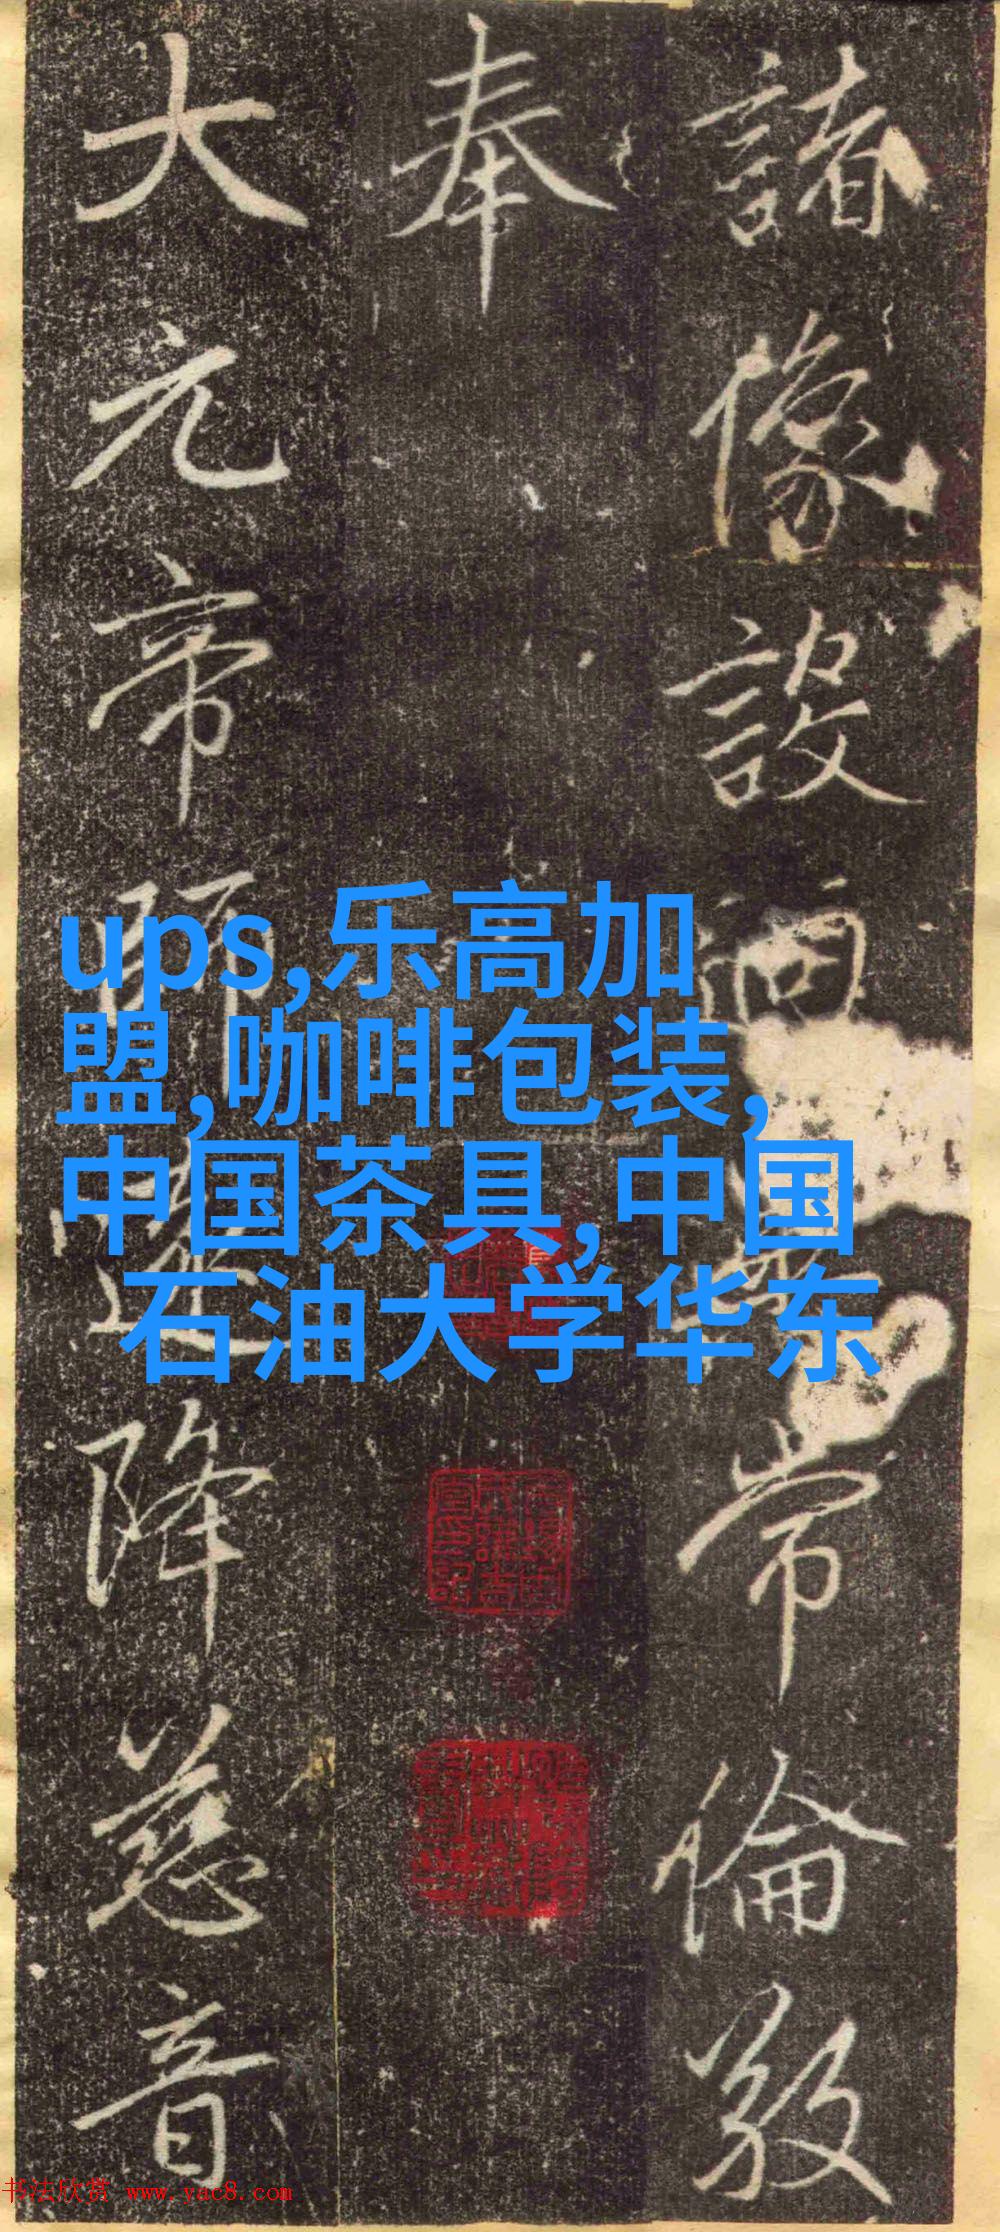 諸像設
常倫敘
奉
大元帝師
降慈音
ups,乐高加
盟,咖啡包装,
中国茶具,中国
石油大学华东
书法欣赏 www.yac8.com